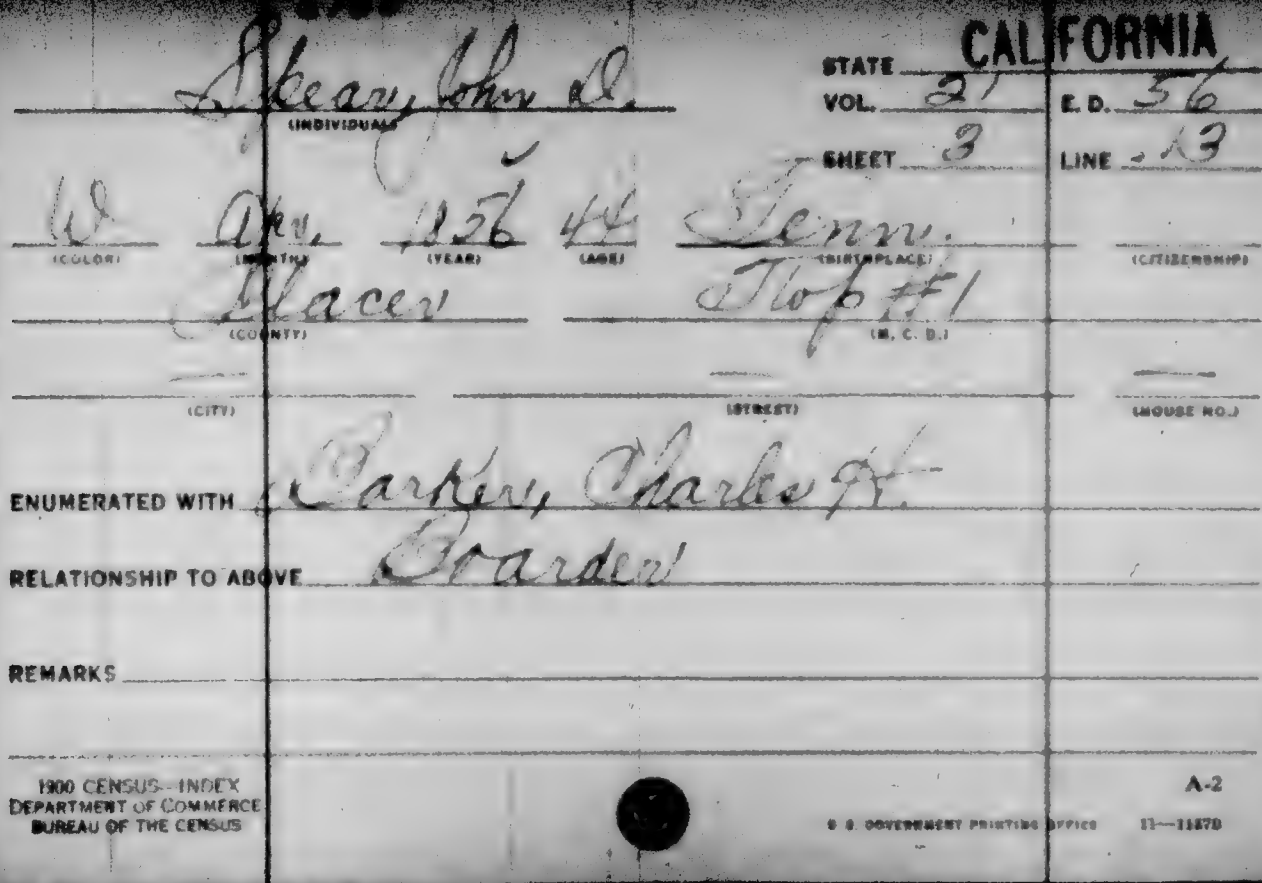 CALIFORNIA
Spear, John D.
(INDIVIDUAL)
STATE
VOL. 21 E. D. 56
SHEET 3 LINE 13
W Apr. 1856 44 Tenn.
(COLOR) (MONTH) (YEAR) (AGE) (BIRTHPLACE) (CITIZENSHIP)
Placer Twp #1
(COUNTY) (M. C. D.)
— — —
(CITY) (STREET) (HOUSE NO.)
ENUMERATED WITH Parker, Charles H.
RELATIONSHIP TO ABOVE Boarder
REMARKS
1900 CENSUS—INDEX A-2
DEPARTMENT OF COMMERCE
BUREAU OF THE CENSUS U. S. GOVERNMENT PRINTING OFFICE